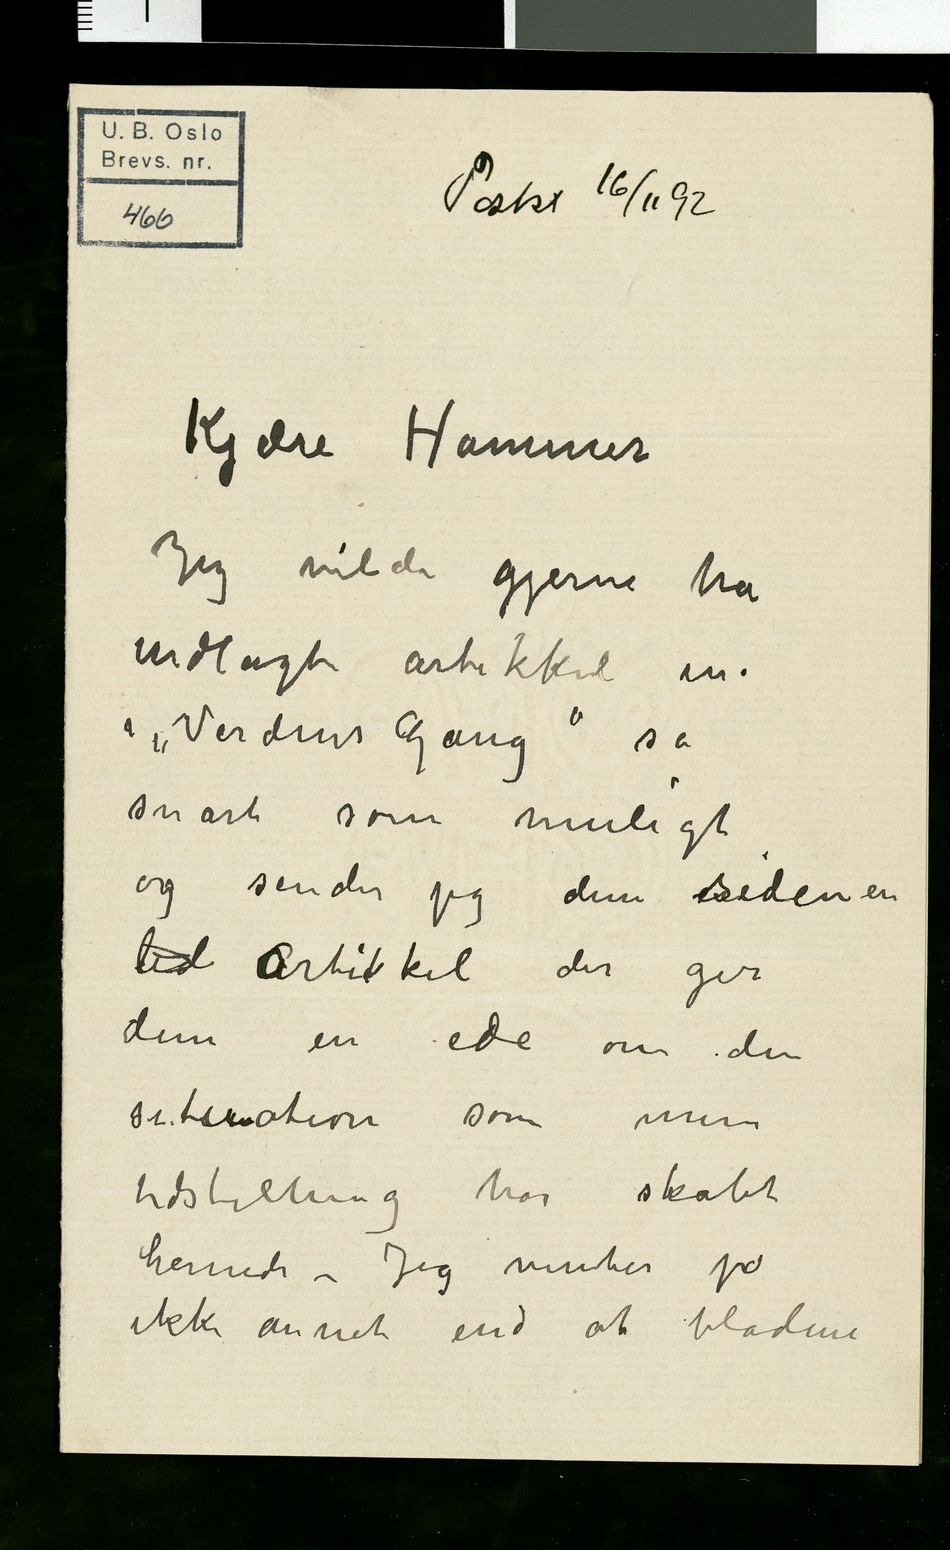 U. B. Oslo
Brevs. nr.
466
Postst 16/11 92
Kjære Hammer
Jeg vilde gjerne ha
indlagte artikkel in
i „Verdens Gang“ så
snart som muligt
og sender jeg dem siden en
artikkel der ger
dem en ide om den
situation som min
udstilling har skabt
hernede – Jeg venter jo
ikke annet end at bladene